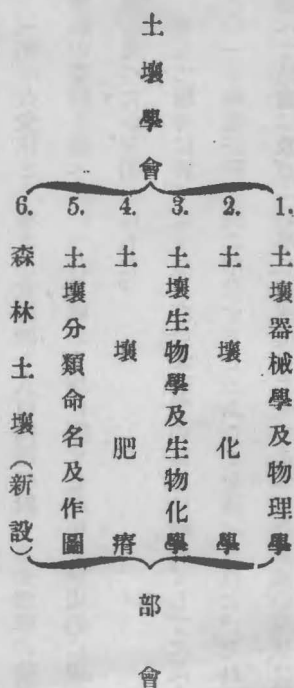 土壤學會
1. 土壤器械學及物理學
2. 土壤化學
3. 土壤生物學及生物化學
4. 土壤肥瘠
5. 土壤分類命名及作圖
6. 森林土壤（新設）
部會